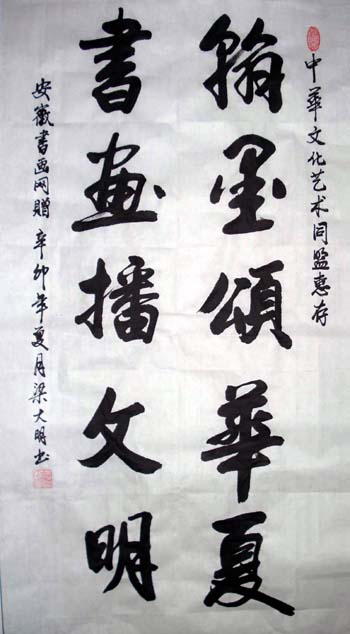 中华文化艺术同盟惠存
翰墨頌華夏
書畫播文明
安徽書画网贈 辛卯年夏月梁大明书